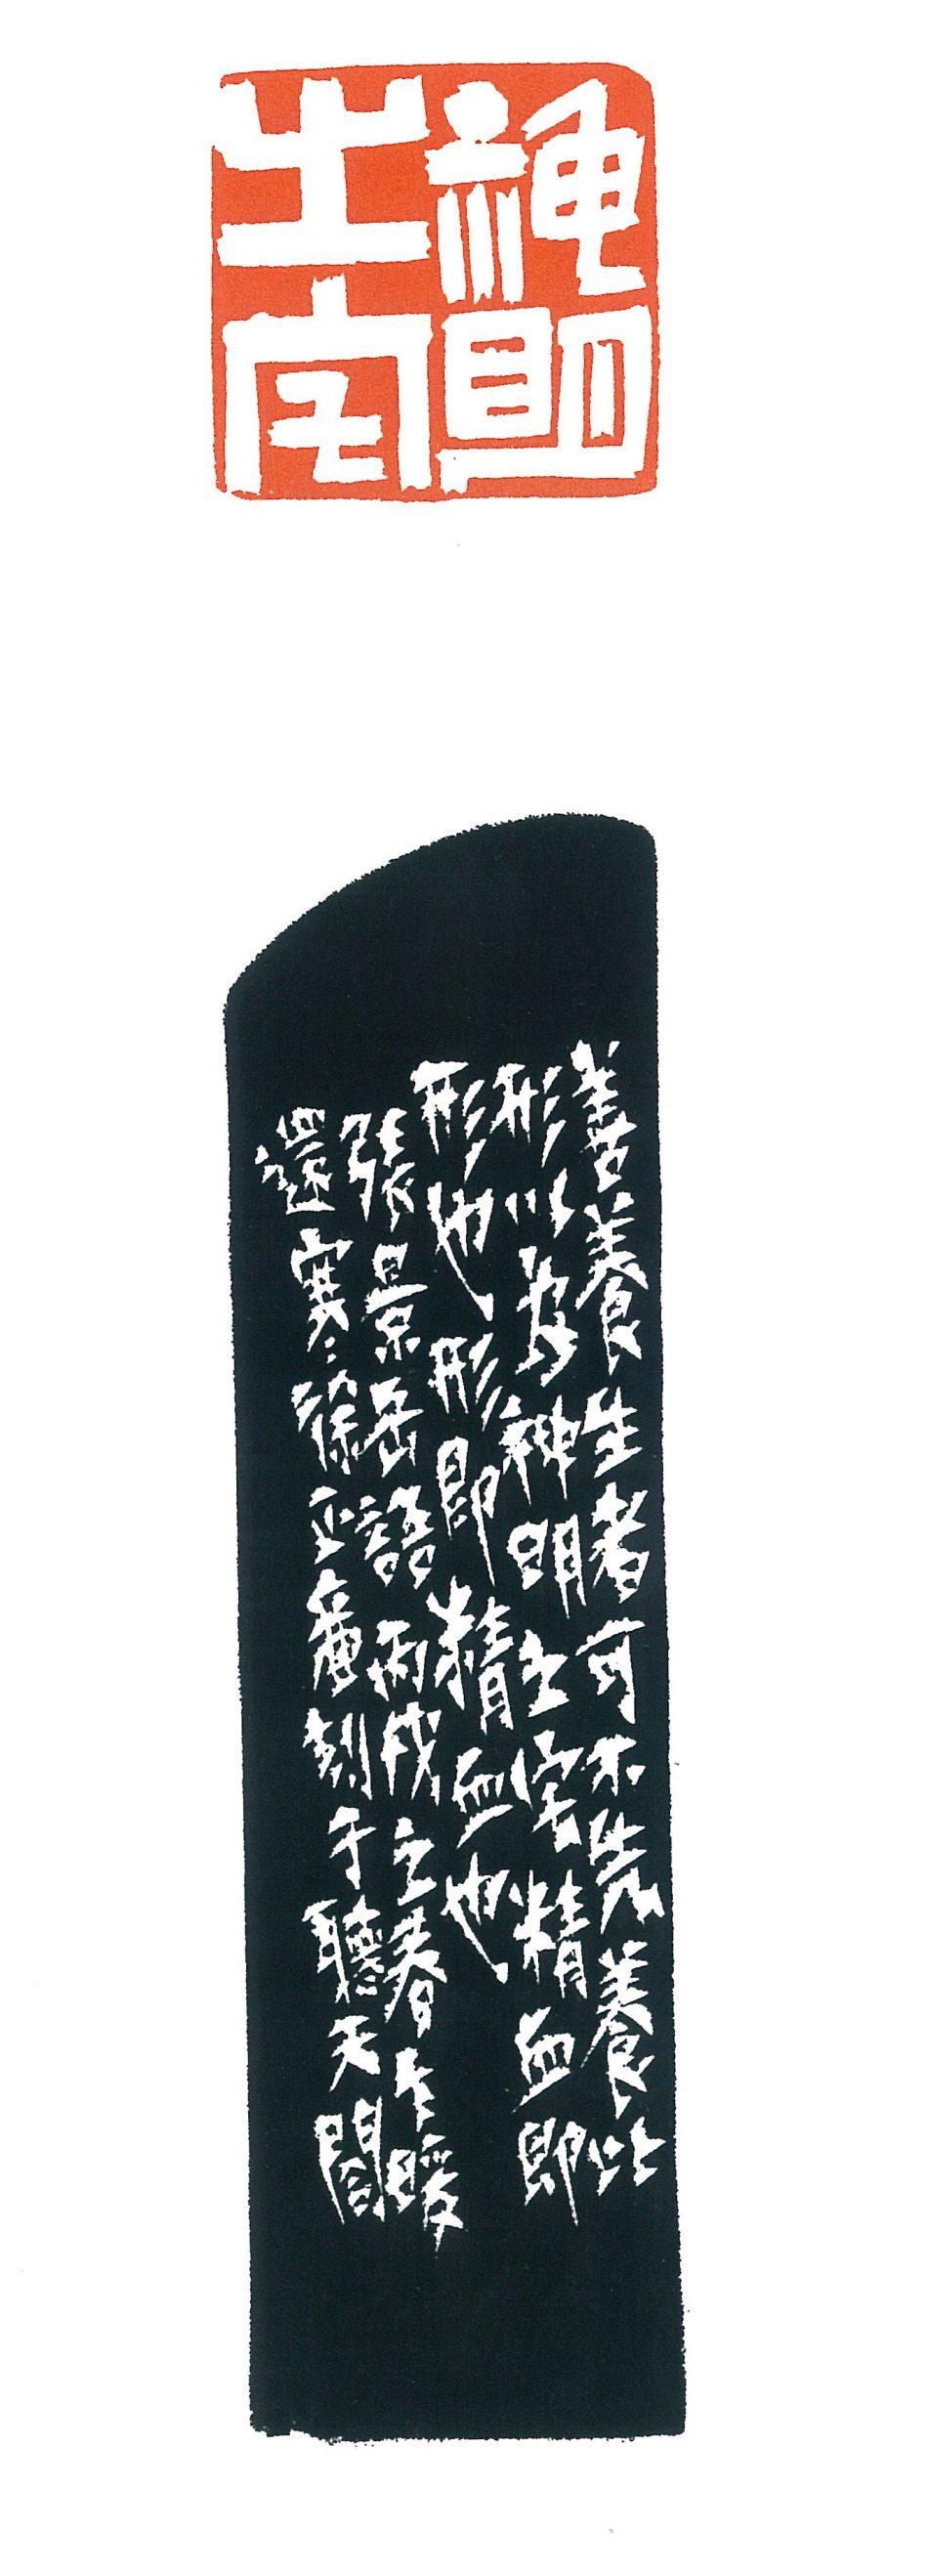 神明
之宅
善養生者可不先養此
形以為神明之宅精血即
形也形即精血也
張景岳語丙戌之春乍暖
還寒徐正廉刻于聽天閣